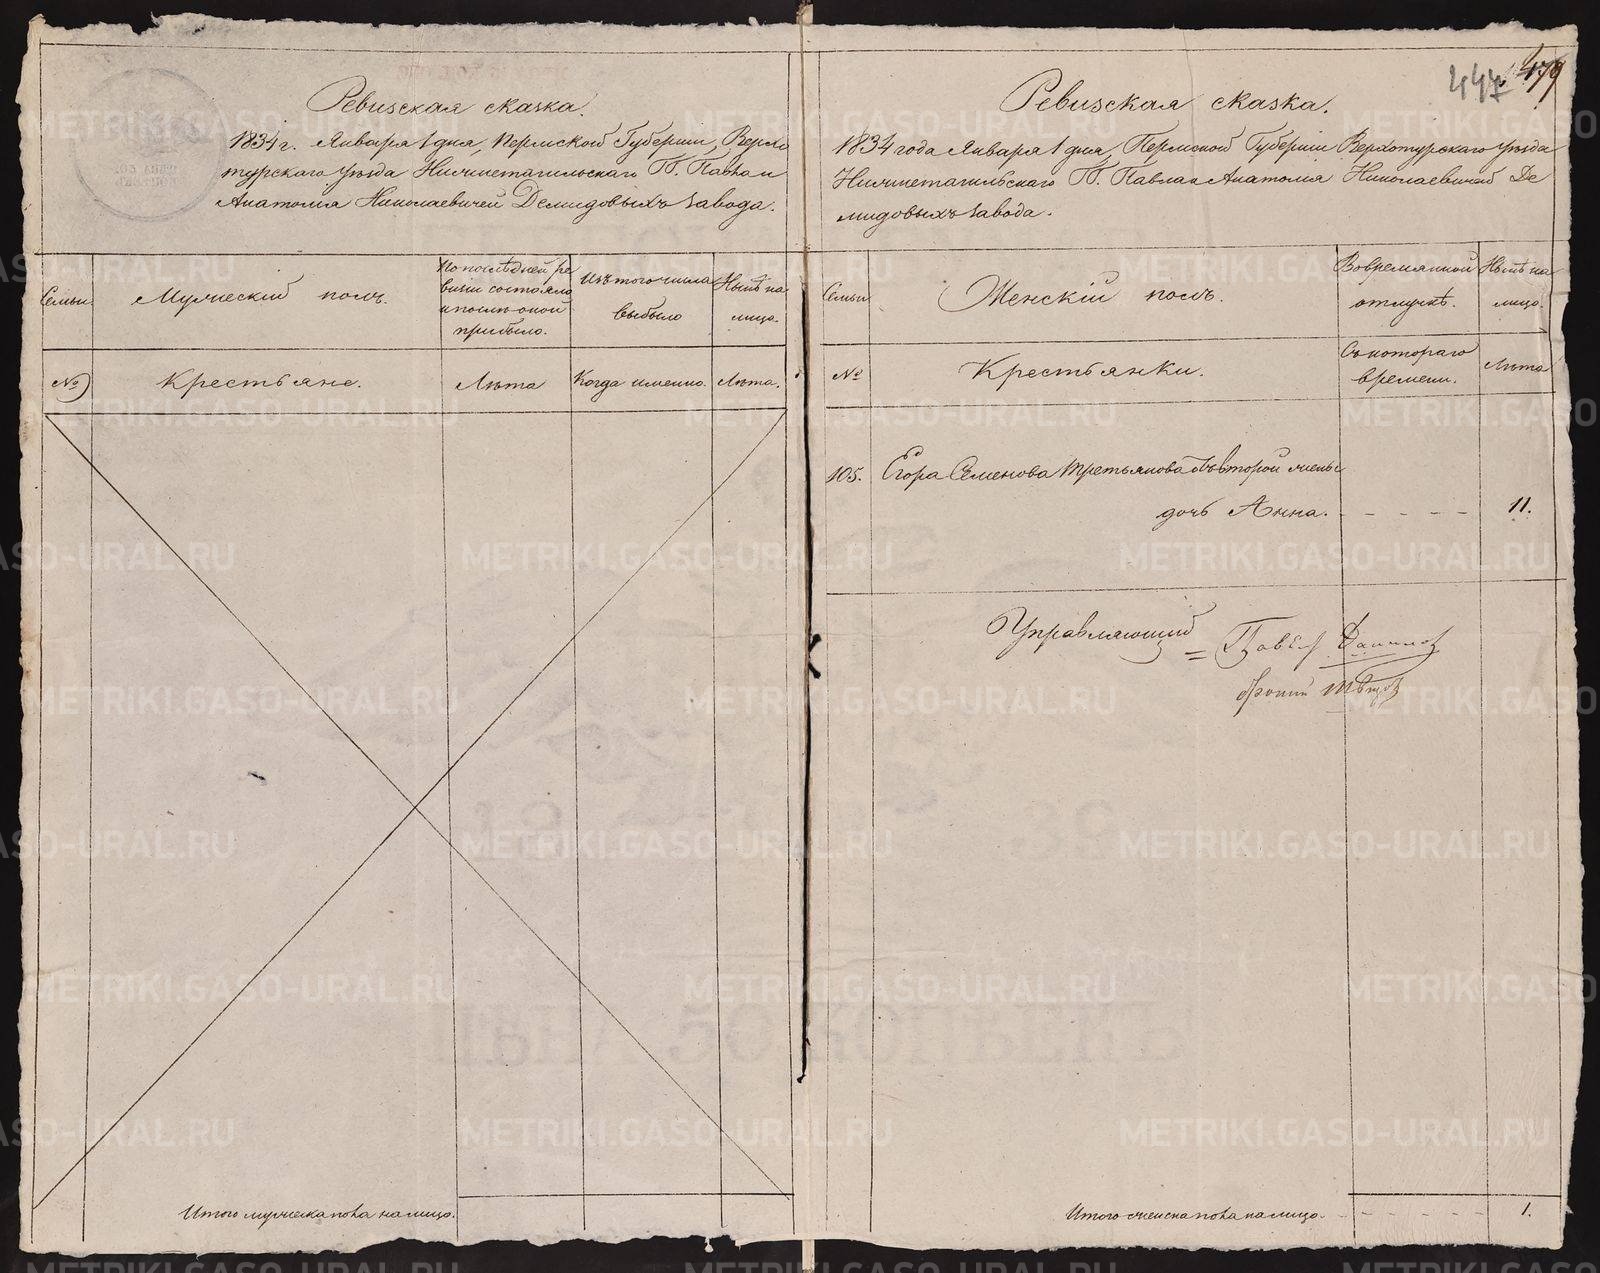 Ревизская сказка.
1834 г. Января 1 дня, Пермской Губернии, Верхо
турскаго уѣзда Нижнетагильскаго Гг. Павла и
Анатолія Николаевичей Демидовыхъ завода.
Семьи
Мужескій полъ.
По послѣдней ре
визіи состояло
и послѣ оной
прибыло.
Изъ того числа
выбыло
Нынѣ на
лицо.
№
Крестьяне.
Лѣта
Когда именно.
Лѣта.
Итого мужеска пола на лицо.
447 479
Ревизская сказка.
1834 года Января 1 дня, Пермской Губерніи Верхотурскаго уѣзда
Нижнетагильскаго Гг. Павла и Анатолія Николаевичей Де
мидовыхъ завода.
Семьи
Женскій полъ.
Во временной
отлучкѣ.
Нынѣ на
лицо.
№
Крестьянки.
Съ котораго
времени.
Лѣта
105. Егора Семенова Третьякова отъ второй жены
дочь Анна. - - - - - 11.
Управляющій = Павел Данилов
Итого женска пола на лицо. - - - - - 1.
METRIKI.GASO-URAL.RU